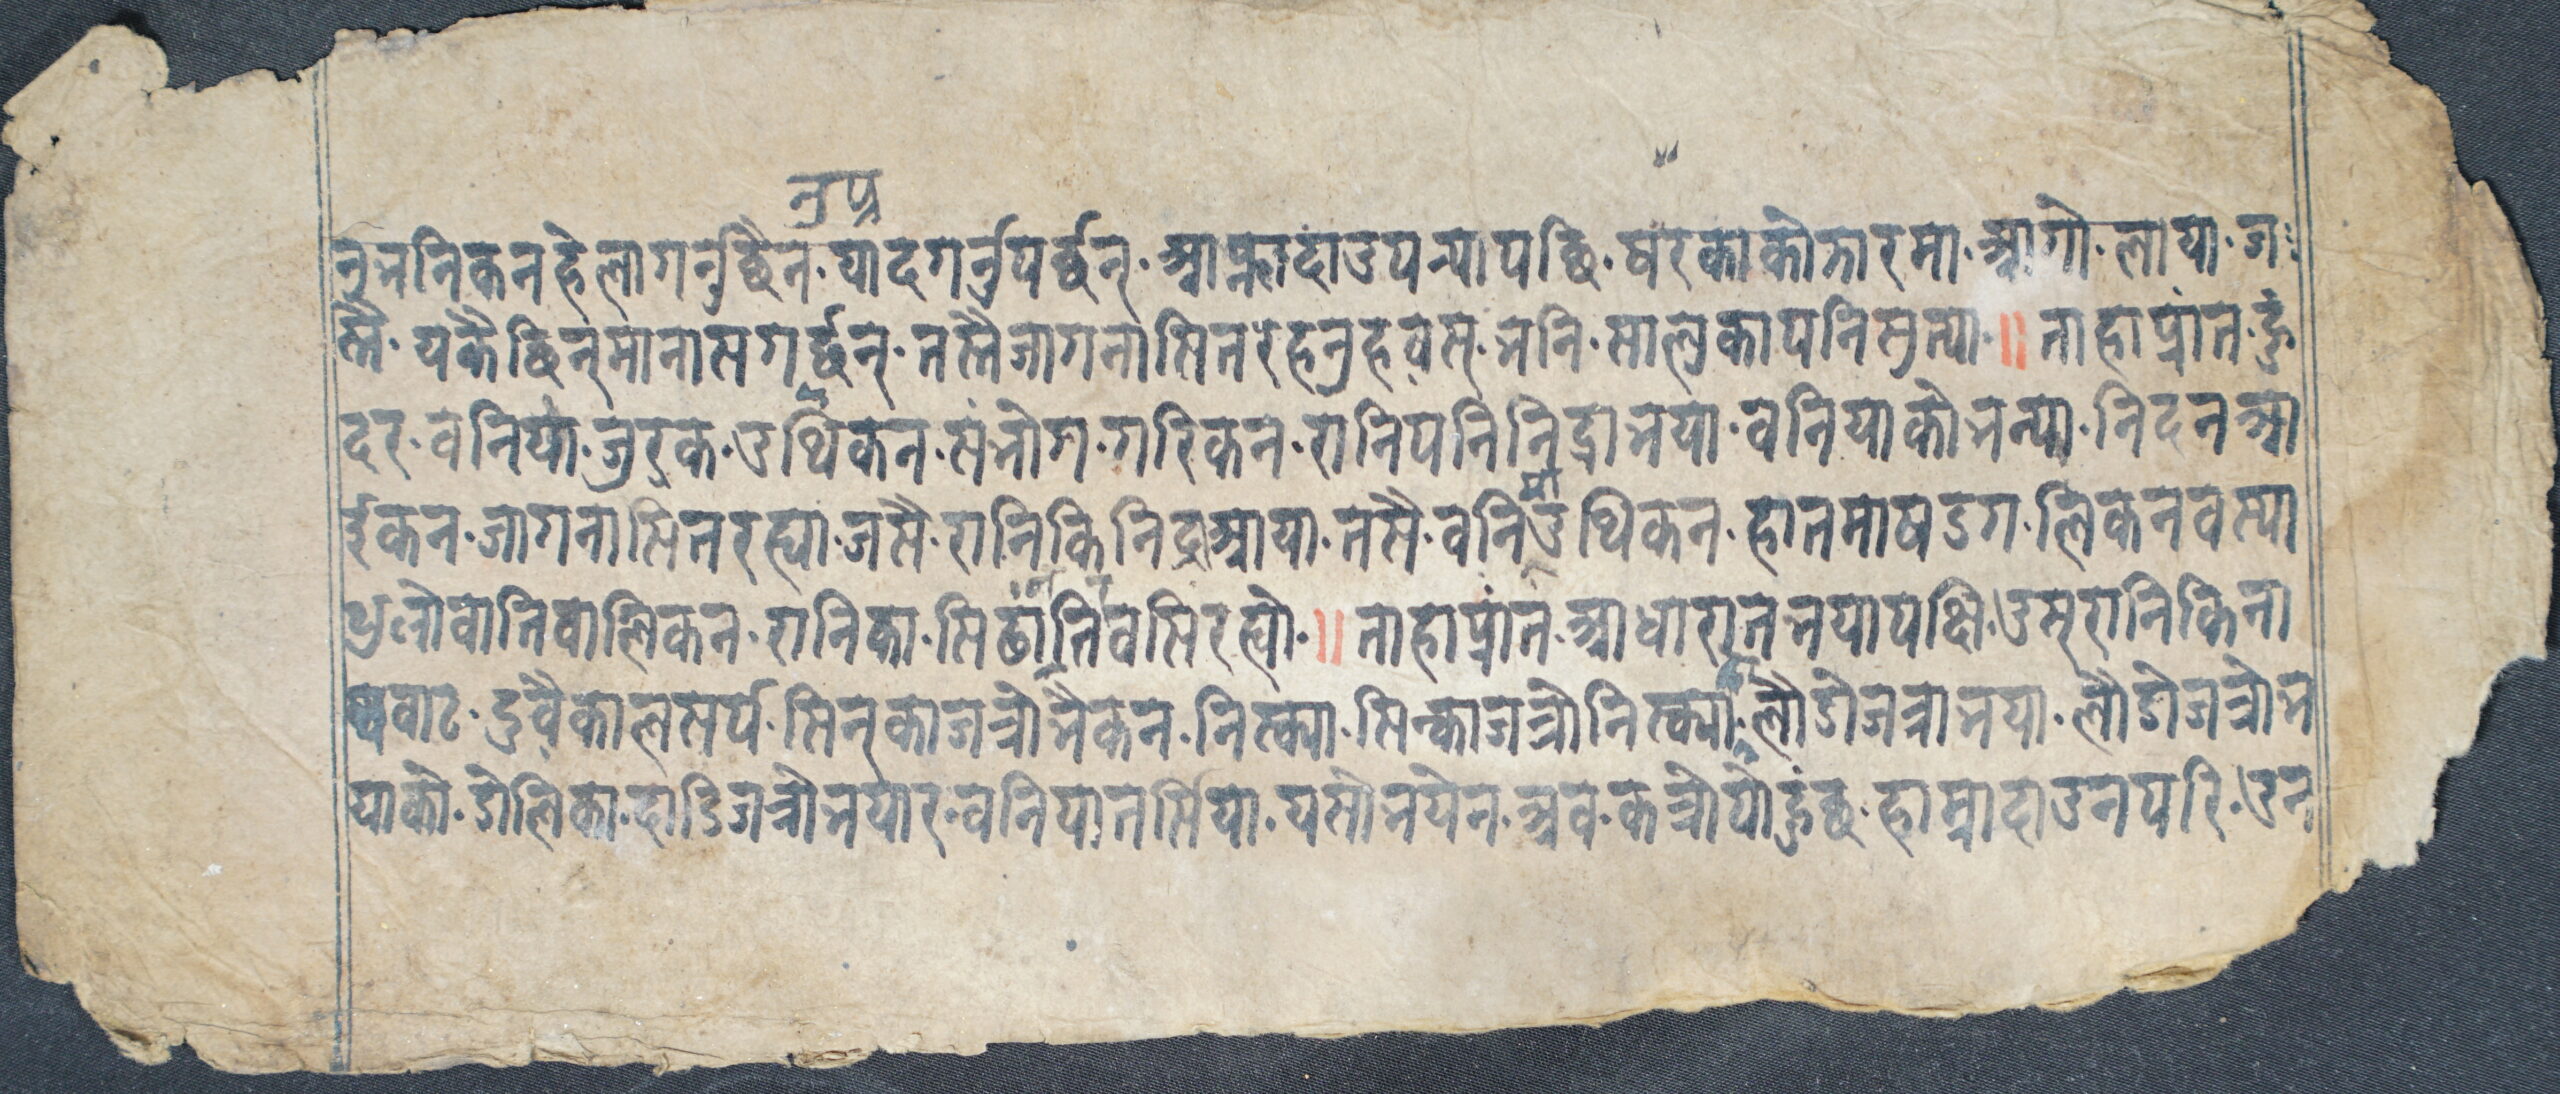 नुप
नुभनिकन हेलागर्नुछैन. याद गर्नुपर्छन्. आफ्नादाउ पर्‍यापछि. षरकाको झारमा. आगो. लाया. ज
स्तै. यकैछिन् मानासगर्छन्. तस्तै जागनासित रहनुहवस् भनि. सालुकापनि सुत्या ॥ ताहाप्रांत. हुं
दर. वनिया. जुरुक. उथिकन. संभोग. गरिकन. रानिपनि निद्राभया. वनियाकोभन्या. निदनआ
ईकन. जागनासित रह्या. जसै. रानिकि निद्राआया. तसै. वनिञा उथिकन. हातमा षडग. लिकन वस्या
थुलो वाति वालिकन. रानिका. सिढांनि वसिरह्यो. ॥ ताहाप्रांत. आधारात भयापछि. उस् रानिकि ना
थवाट. दुवै काल सर्प. सिन्का जत्रो भैकन. निस्क्या. सिन्का जत्रो निस्क्या. लौडो जत्रा भया. लौडो जत्रो भ
याको. डोलिका. दाडि जत्रो भयार. वनिया तर्सिया. यसो भयेन. अव. कत्रो पो हुंछ. हाम्रा दाउ नपरि. उन